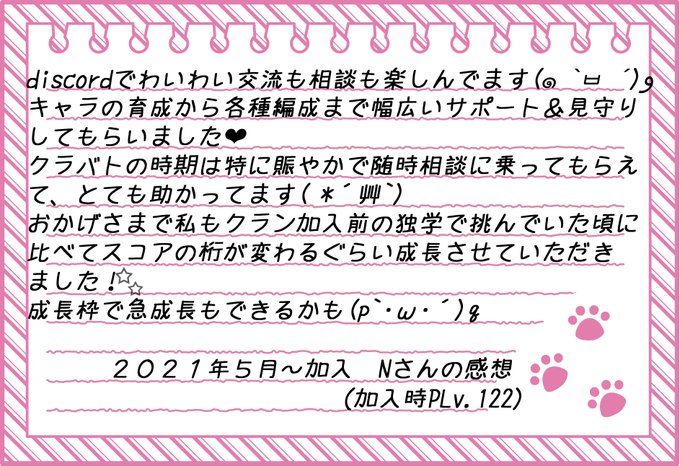 discordでわいわい交流も相談も楽しんでます(๑ `ㅂ ´)و
キャラの育成から各種編成まで幅広いサポート＆見守り
してもらいました❤
クラバトの時期は特に賑やかで随時相談に乗ってもらえ
て、とても助かってます( *´艸`)
おかげさまで私もクラン加入前の独学で挑んでいた頃に
比べてスコアの桁が変わるぐらい成長させていただき
ました！☆☆
成長枠で急成長もできるかも(p`･ω･´)q
２０２１年５月～加入　Nさんの感想
(加入時PLv.122)